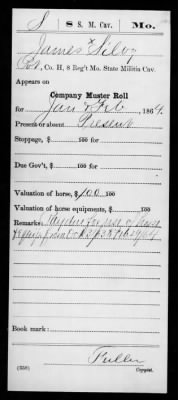 S | 8 S. M. Cav. | Mo.
James Silvy
Pvt., Co. H, 8 Reg't Mo. State Militia Cav.
Appears on
Company Muster Roll
for Jan & Feb, 1864.
Present or absent Present
Stoppage, $ 100 for
Due Gov't, $ 100 for
Valuation of horse, $ 100 100
Valuation of horse equipments, $ 100
Remarks: for use of
Book mark:
Fuller
(358) Copyist.